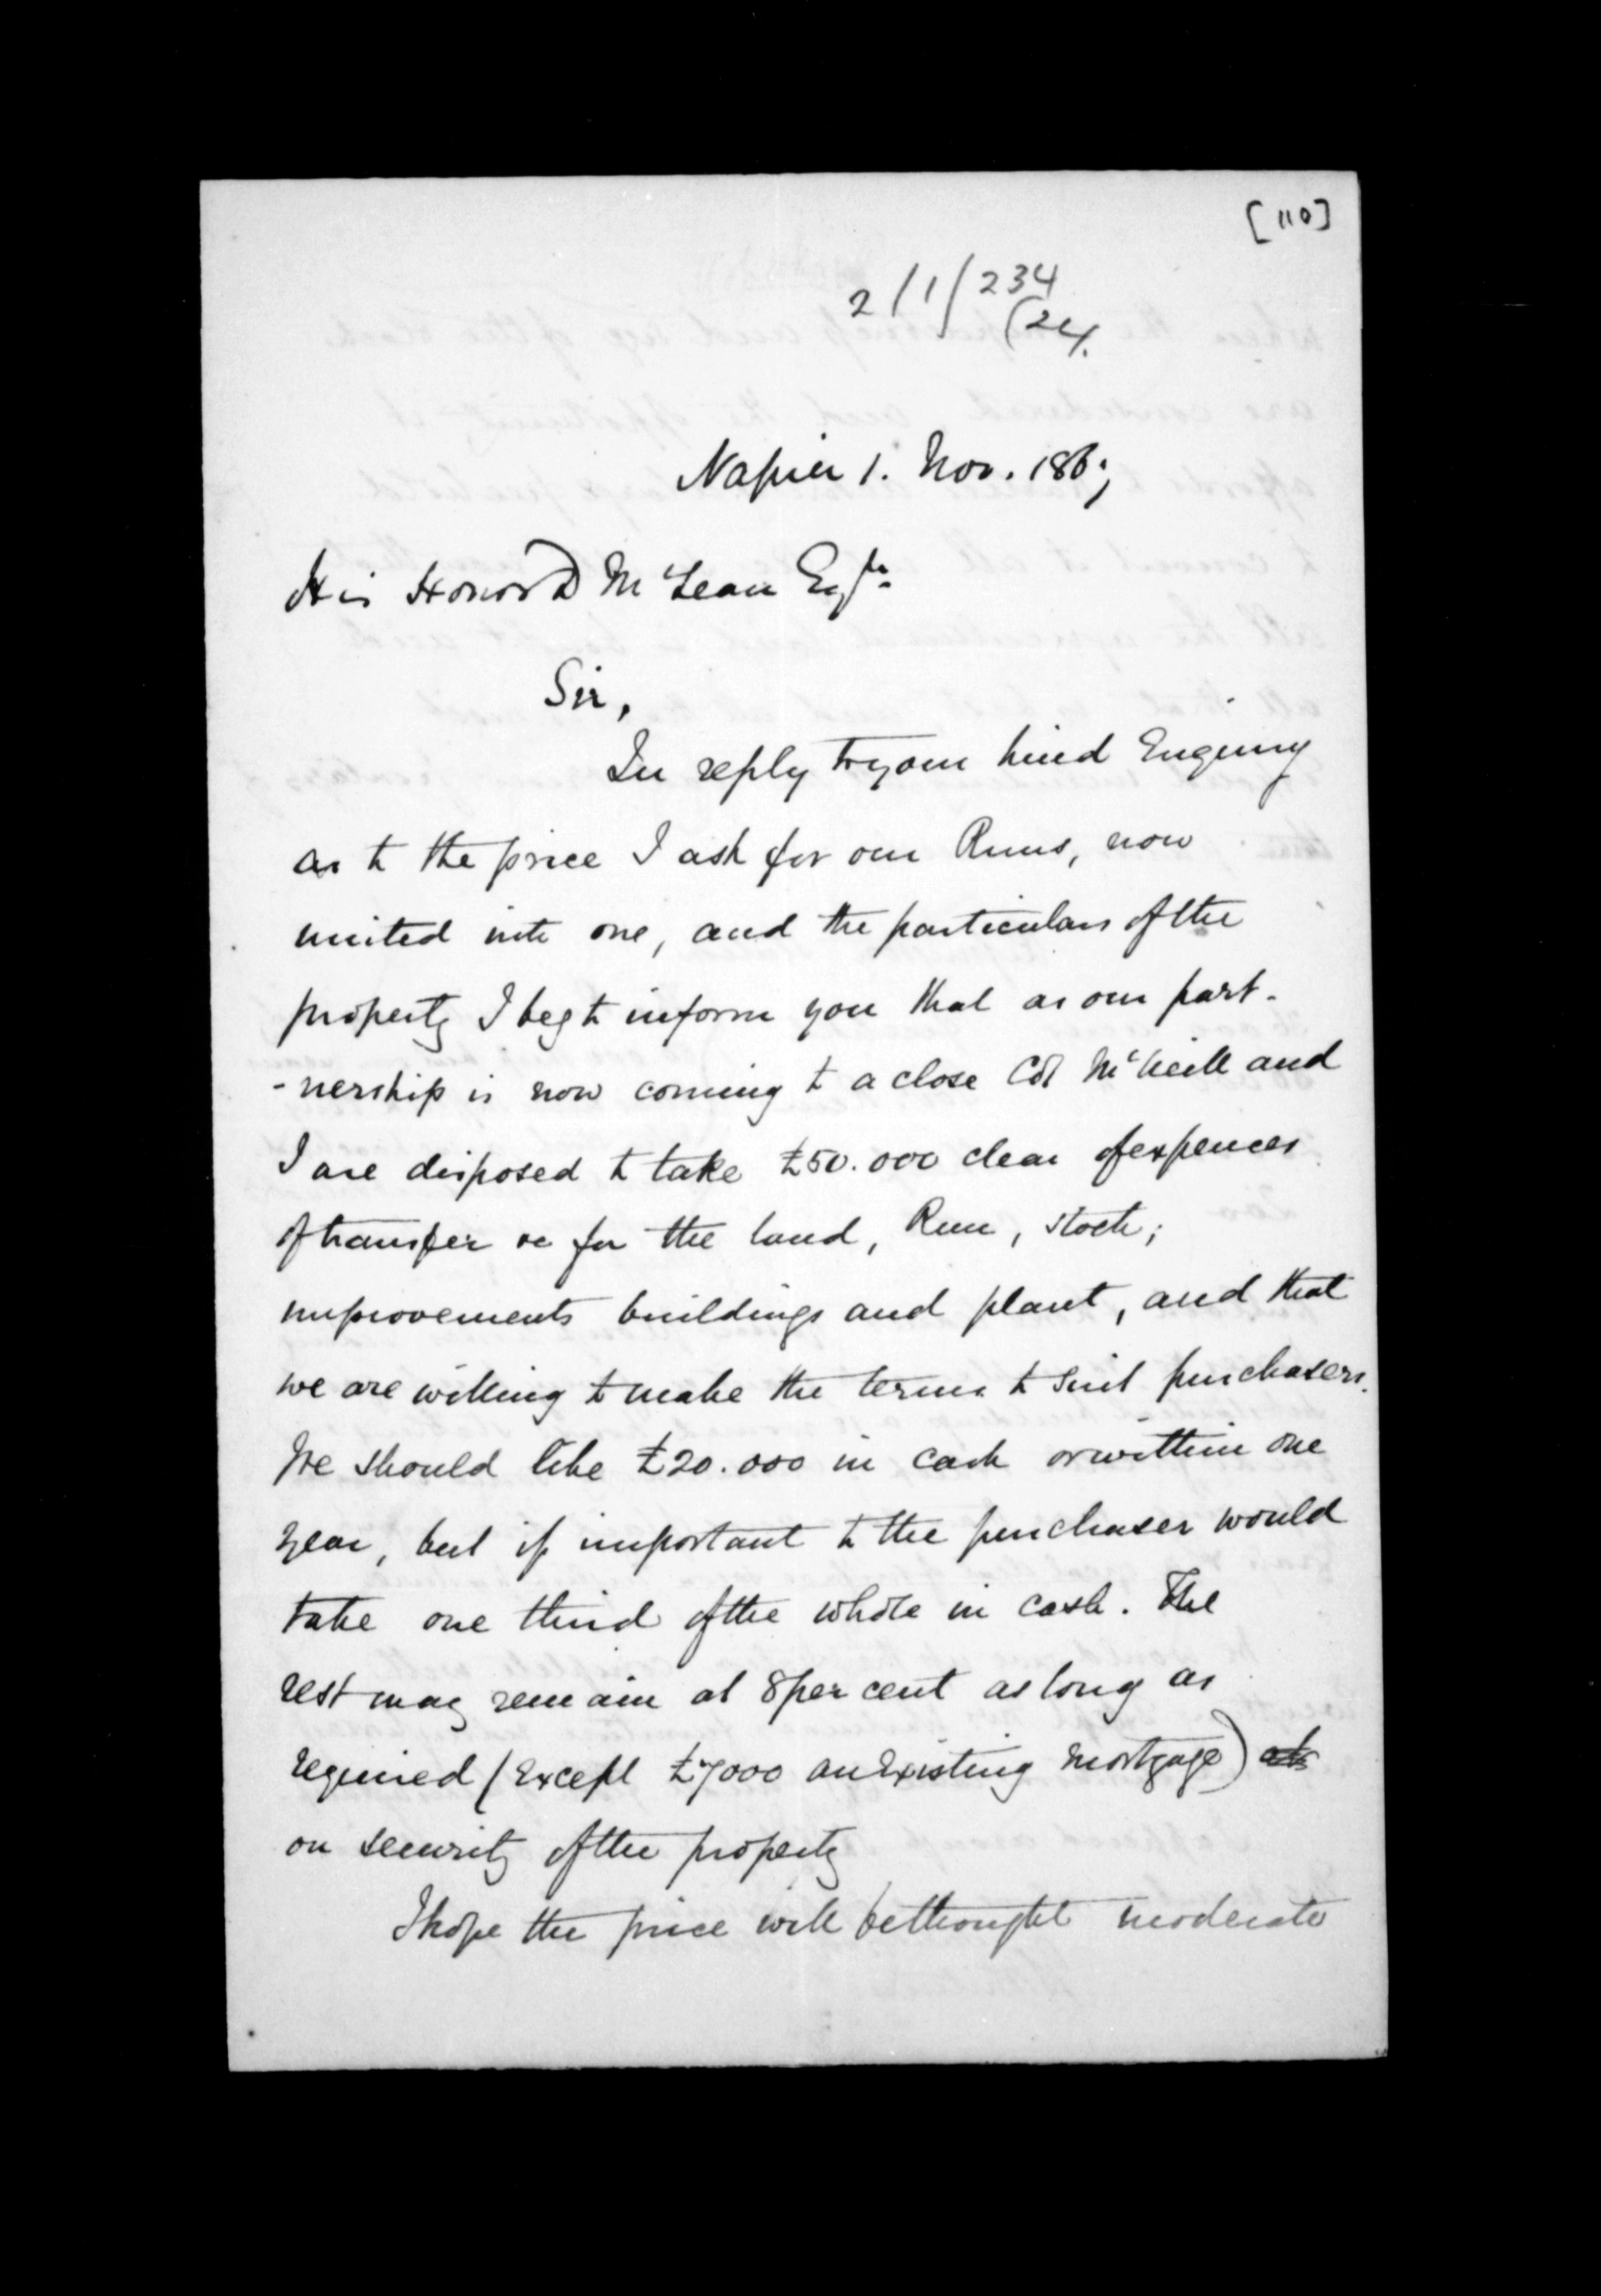 [110]
2/1/234
(24.
Napier 1. Nov. 1867
His Honor D McLean Esqre.
Sir,
In reply to your kind Enquiry
as to the price I ask for our Runs, now
united into one, and the particulars of the
property I beg to inform you that as our part-
-nership is now coming to a close Col McNeill and
I are disposed to take £50.000 clear of expences
of transfer &c for the land, Run, stock;
improvements buildings and plant, and that
we are willing to make the terms to suit purchasers.
We should like £20.000 in cash or within one
year, but if important to the purchaser would
take one third of the whole in cash. The
rest may remain at 8 per cent as long as
required (Except £7000 an Existing mortgage)
on security of the property
I hope the price will be thought moderate